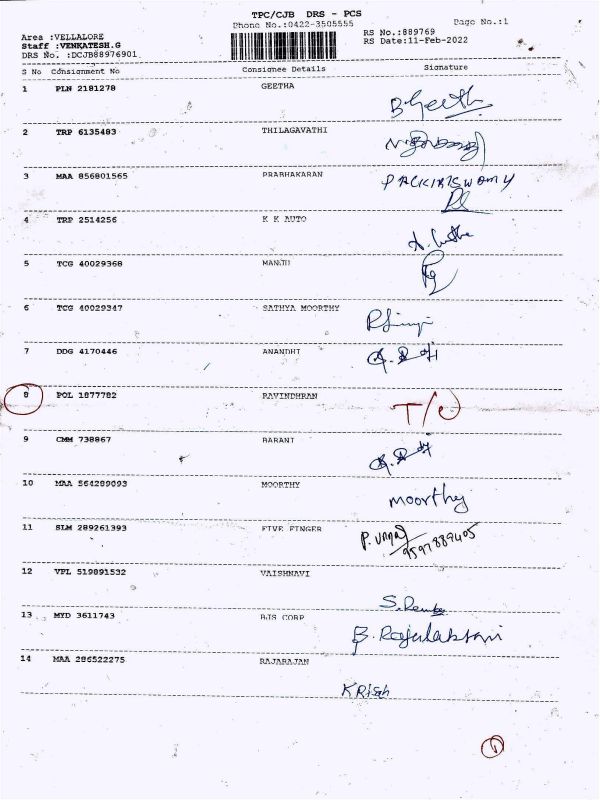 TPC/CJB DRS - PCS
Phone No.:0422-3505555
Page No.:1
Area :VELLALORE
RS No.:889769
Staff :VENKATESH.G
RS Date:11-Feb-2022
DRS No. :DCJB88976901
S No Consignment No Consignee Details Signature
1 PLN 2181278 GEETHA
B.Geetha
2 TRP 6135483 THILAGAVATHI
3 MAA 856801565 PRABHAKARAN
4 TRP 2514256 K K AUTO
5 TCG 40029368 MANJU
6 TCG 40029347 SATHYA MOORTHY
7 DDG 4170446 ANANDHI
8 POL 1877782 RAVINDHRAN
T/
9 CMM 738867 BARANI
10 MAA 564289093 MOORTHY
moorthy
11 SLM 289261393 FIVE FINGER
9597889405
12 VPL 519891532 VAISHNAVI
13 MYD 3611743 BJS CORP
B. Rajulakshmi
14 MAA 286522275 RAJARAJAN
KRish
1